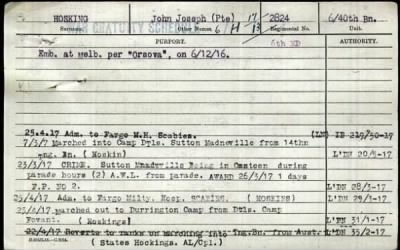 HOSKING John Joseph (Pte) 17 2824 6/40th Bn.
Surname. Other Names Regimental No. Unit.
GRATUITY
PURPORT. 6th MD AUTHORITY.
Emb. at Melb. per "Orsova", on 6/12/16.
25.4.17 Adm. to Fargo M.H. Scabies. (LN) IE 219/50-17
7/3/7 Marched into Camp Dtls. Sutton Madneville from 14thn
Tng. Bn. (Hoskin) L'DN 20/5-17
23/3/17 CRIME. Sutton Mnadvville Being in Canteen during
parade hours (2) A.W.L. from parade. AWARD 26/3/17 1 days
F.P. NO 2. L'DN 28/3-17
25/4/17 Adm. to Fargo Milty. Hosp. SCABIES. (Hoskin) L'DN 29/3-17
25/4/17 marched out to Durrington Camp from Dtls. Camp
Fovant. (Hoskings) L'DN 31/1-17
22/4/17 Reverts to Ranks on Marching into Tng.Bn. from Aust.
(States Hockings. AL/Cpl.)